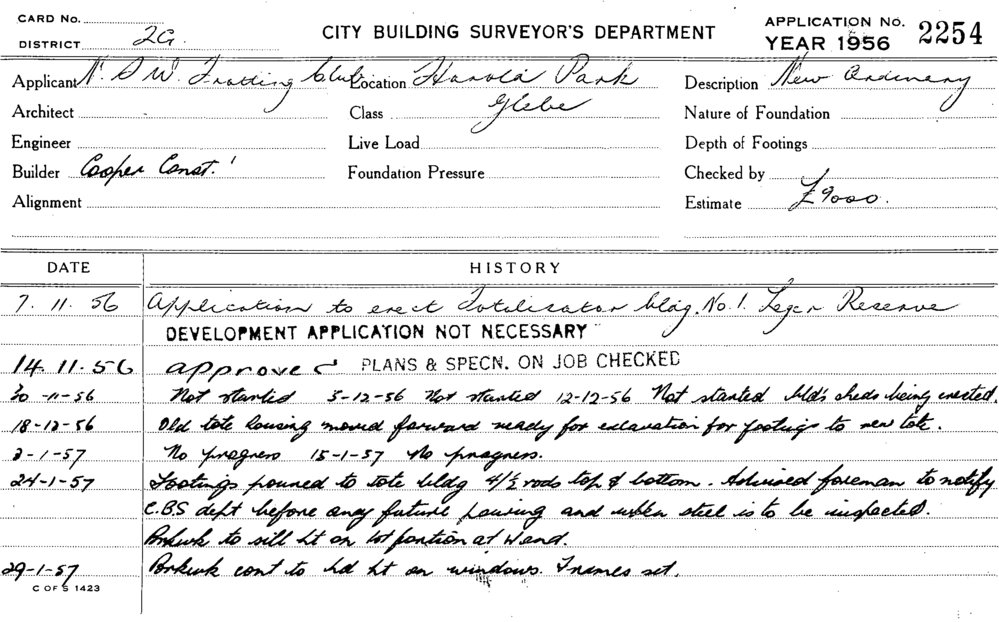 CARD No.
DISTRICT 2G.
CITY BUILDING SURVEYOR'S DEPARTMENT
APPLICATION No. 2254
YEAR 1956
Applicant N.S.W. Trotting Club Location Harold Park Description New Ordinary
Architect Class Glebe Nature of Foundation
Engineer Live Load Depth of Footings
Builder Cooper Const. Foundation Pressure Checked by
Alignment Estimate £9000.
DATE HISTORY
7. 11. 56 Application to erect Totalisator bldg. No. 1. Leger Reserve
DEVELOPMENT APPLICATION NOT NECESSARY
14. 11. 56 approved PLANS & SPECN. ON JOB CHECKED
20-11-56 Not started 5-12-56 Not started 12-12-56 Not started bld's sheds being erected.
18-12-56 Old tote housing moved forward ready for excavation for footings to new tote.
2-1-57 No progress 15-1-57 No progress.
24-1-57 Footings poured to tote bldg 4/½ rods top & bottom. Advised foreman to notify
C.B.S dept before any future pouring and when steel is to be inspected.
Brkwk to sill ht on portion at W end.
29-1-57 Brkwk cont to hd ht on windows. Frames set.
C OF S 1423